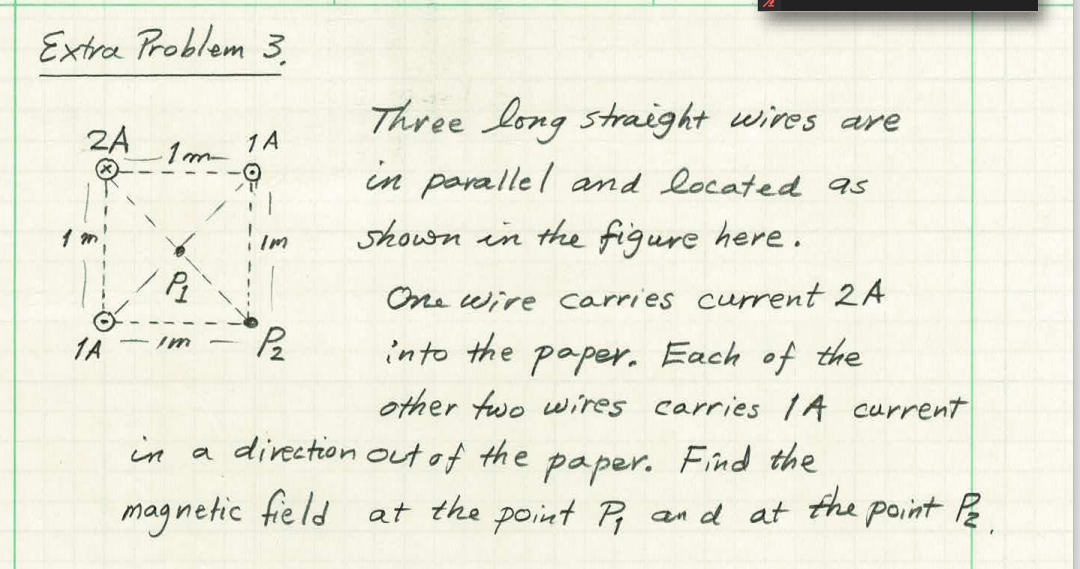 Extra Problem 3.
Three long straight wires are
in parallel and located as
shown in the figure here.
One wire carries current 2A
into the paper. Each of the
other two wires carries 1A current
in a direction out of the paper. Find the
magnetic field at the point P₁ and at the point P₂.
2A
1A
1m
1m
1m
P₁
1A
1m
P₂